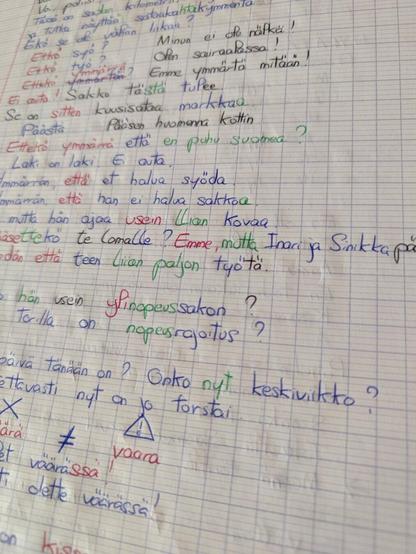 Tässä on sadan kilometrin
ja tutka näyttää sataakahtakymmentä
Eikö se ole vähän liikaa?
Etkö syö? Minun ei ole nälkä!
Etkö työ? Olin sairaalassa!
Ettekö ymmärrä? Emme ymmärtä mitään!
Ei auta! Sakko tästä tulee
Se on sitten kuusisataa markkaa
Päästä Pääsen huomenna kottiin
Ettekö ymmärrä että en puhu suomea?
Laki on laki Ei auta.
mmärrän että et halua syödä
mmärrän, että hän ei halua sakkoa
mutta hän ajaa usein liian kovaa
äsettekö te lomalle? Emme, mutta Inari ja Sinikka pä
dän että teen liian paljon työtä.
hän usein ylinopeussakon?
Torilla on nopeusrajoitus?
päivä tänään on? Onko nyt keskiviikko?
ettavasti nyt on jo torstai
ärä ≠ vaara
et väärässä!
ti olette väärässä!
on